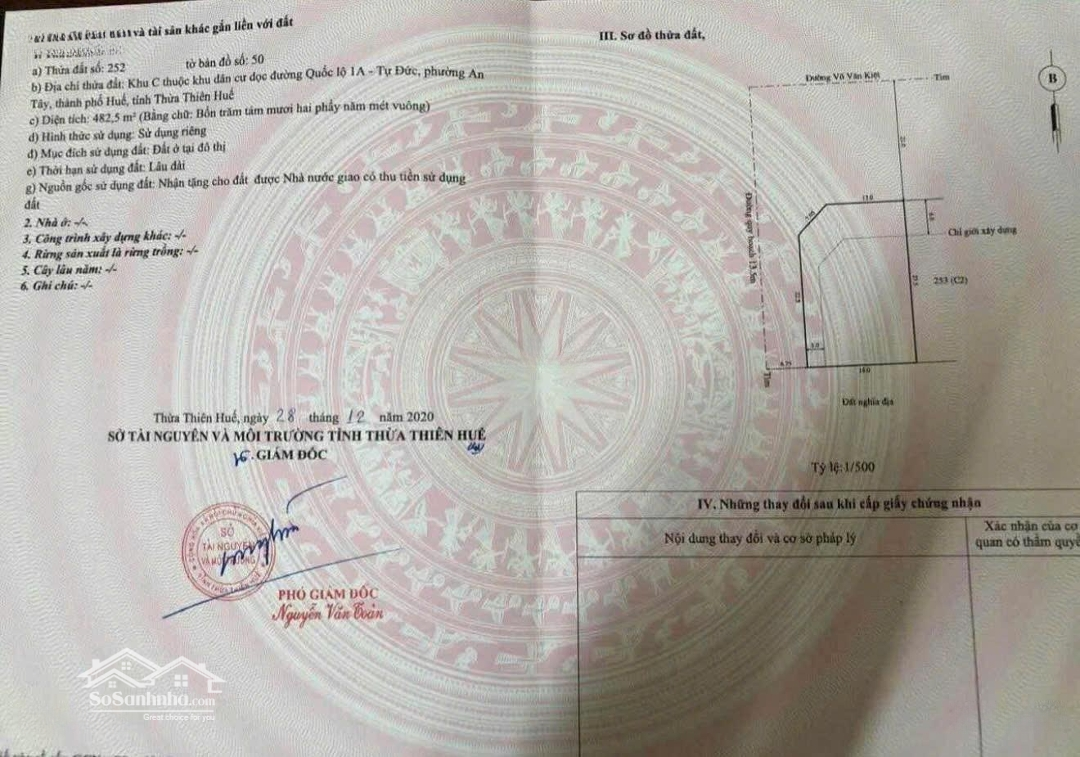 và tài sản khác gắn liền với đất
a) Thửa đất số: 252 tờ bản đồ số: 50
b) Địa chỉ thửa đất: Khu C thuộc khu dân cư dọc đường Quốc lộ 1A - Tự Đức, phường An
Tây, thành phố Huế, tỉnh Thừa Thiên Huế
c) Diện tích: 482,5 m² (Bằng chữ: Bốn trăm tám mươi hai phẩy năm mét vuông)
d) Hình thức sử dụng: Sử dụng riêng
đ) Mục đích sử dụng đất: Đất ở tại đô thị
e) Thời hạn sử dụng đất: Lâu dài
g) Nguồn gốc sử dụng đất: Nhận tặng cho đất được Nhà nước giao có thu tiền sử dụng
đất
2. Nhà ở: -/-
3. Công trình xây dựng khác: -/-
4. Rừng sản xuất là rừng trồng: -/-
5. Cây lâu năm: -/-
6. Ghi chú: -/-
Thừa Thiên Huế, ngày 28 tháng 12 năm 2020
SỞ TÀI NGUYÊN VÀ MÔI TRƯỜNG TỈNH THỪA THIÊN HUẾ
GIÁM ĐỐC
SỞ
TÀI NGUYÊN
VÀ MÔI TRƯỜNG
PHÓ GIÁM ĐỐC
Nguyễn Văn Toản
SoSanhnha.com
Great choice for you
III. Sơ đồ thửa đất,
Đường Võ Văn Kiệt
Tim
B
13.0
6.0
Chỉ giới xây dựng
Đường quy hoạch 13.5m
253 (C2)
3.0
6.75
18.0
Tim
Đất nghĩa địa
Tỷ lệ: 1/500
IV. Những thay đổi sau khi cấp giấy chứng nhận
Nội dung thay đổi và cơ sở pháp lý
Xác nhận của cơ
quan có thẩm quyề